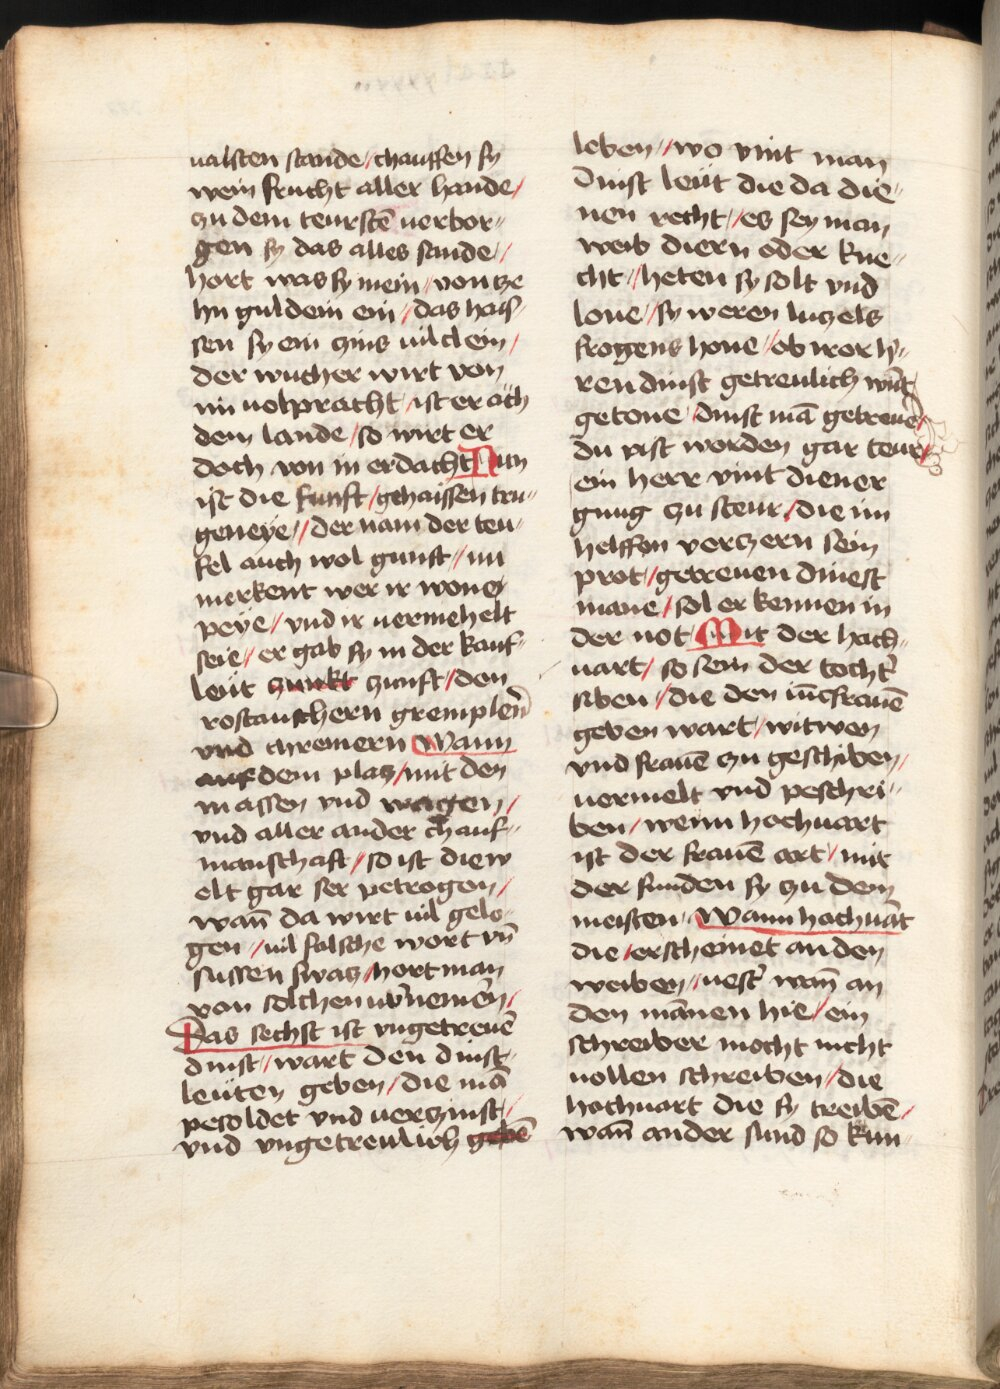 ualsten stande / chauffen sy
wein frucht aller hande /
zu dem teursten̄ uerbor-
gen sy das alles sande /
hort was sy mein / von ze
hn guldein ein / das hais-
sen sy ein zins uil clein /
der wucher wirt von
im uolpracht / ist er ach
dem lande / so wirt er
doch von in erdacht Nun
ist die funft / gehaissen tru-
geneye / der nam der teu-
fel auch wol gunst / nu
merkent wer ir wone
peye / vnd ir uermehelt
seie / er gab sy in der kauf-
leüt zunkt zunft / den
rostauschern gremplern̄
vnd chremern Wann
auf dem plaz / mit den
massen vnd wagen /
vnd aller ander chauf-
manschaft / so ist die w
elt gar ser petrogen /
wan̄ da wirt uil gelo-
gen / uil falsche wort vn̄
sussen swaz / hort man
von solchen uürnemen̄ /
Das sechst ist vngetreuē
dinst / wart den dinst-
leüten geben / die mā
pesoldet vnd uerzinst /
vnd vngetreulich gebē
leben / wo vint man
Dinst leüt die da die-
nen recht / es sey man
weib diern oder kne-
cht / heten sy solt vnd
lone / sy weren luzels
frogens hone / ob wor iy-
ren dinst getreulich wirt
getone / dinst mā getreuē /
du pist worden gar teur /
ein herr vint diener
gnug zu steur / die im
helffen verzern sein
prot / getreuen dinest
mane / sol er kennen in
der not Mit der hoch-
uart / so sein der tocht̄
siben / die den iūcfrauē
geben wart / witwen
vnd frauē zu geschiben /
uermelt vnd peschri-
ben / wenn hochuart
ist der frauē art / mit
der sunden sy zu dem
meisten / Wann hochuāt
die / erscheinet an den
weiben / uest̄ wan̄ an
den mānen hie / ein
schreiber mocht nicht
uollen schreiben / die
hochuart die sy treibē /
wan̄ ander sund so kun-